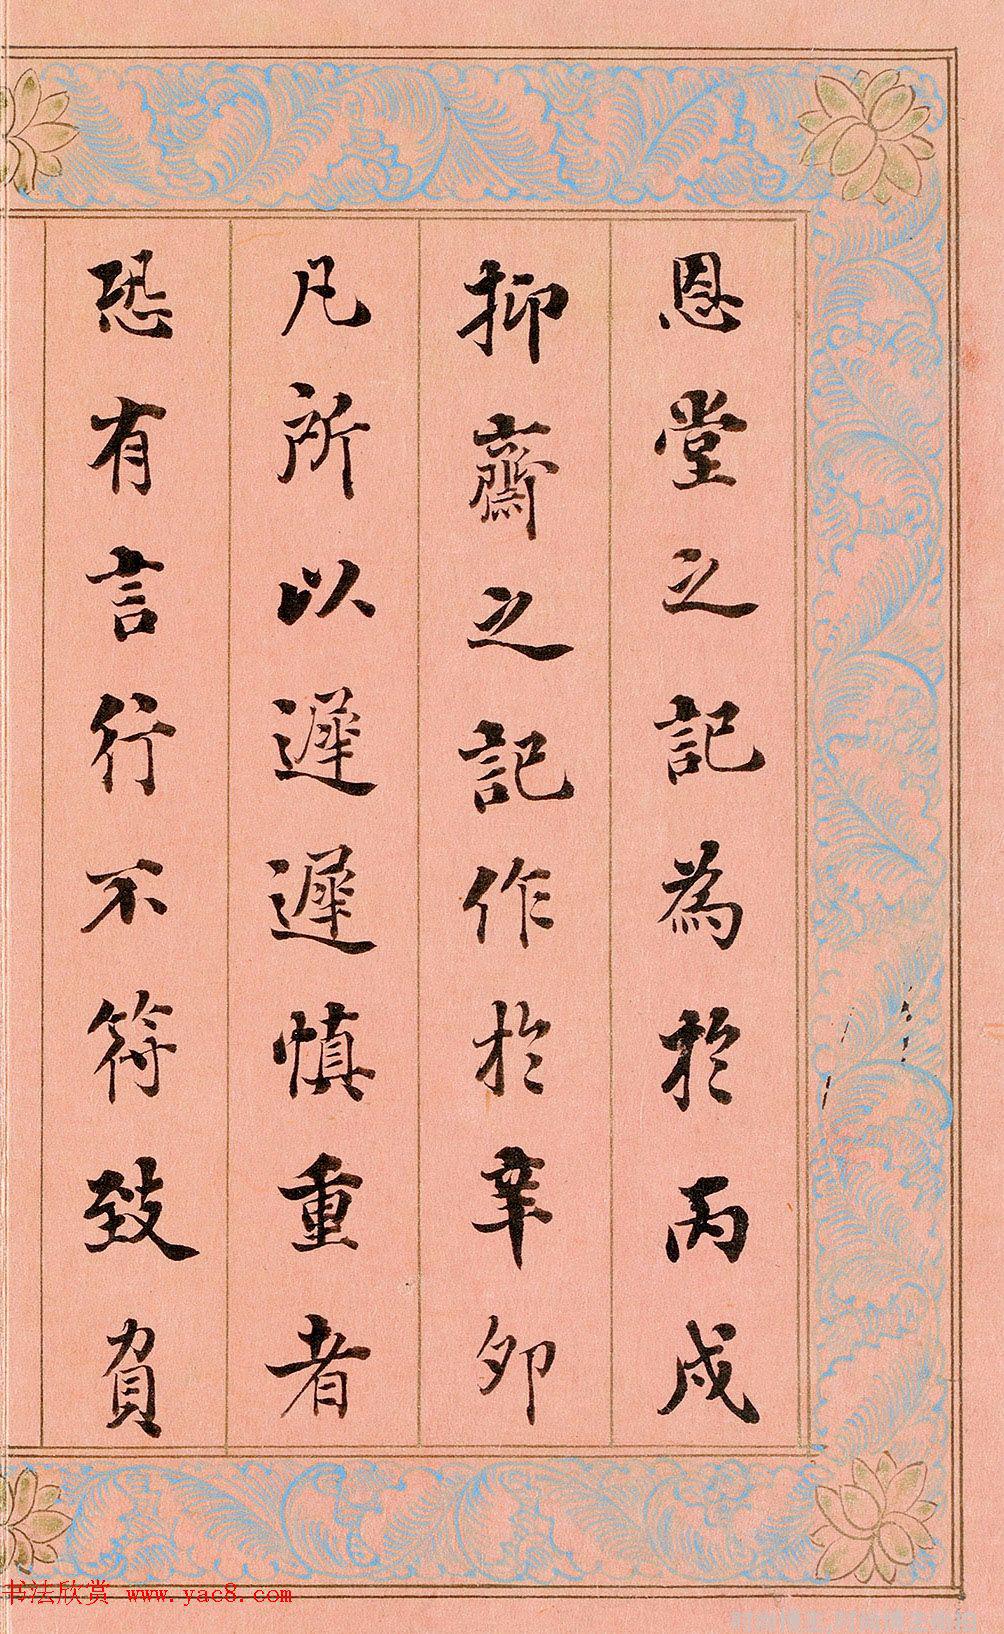 恩堂之記為於丙戌
抑齋之記作於辛卯
凡所以遲遲慎重者
恐有言行不符致負
书法欣赏 www.yac8.com